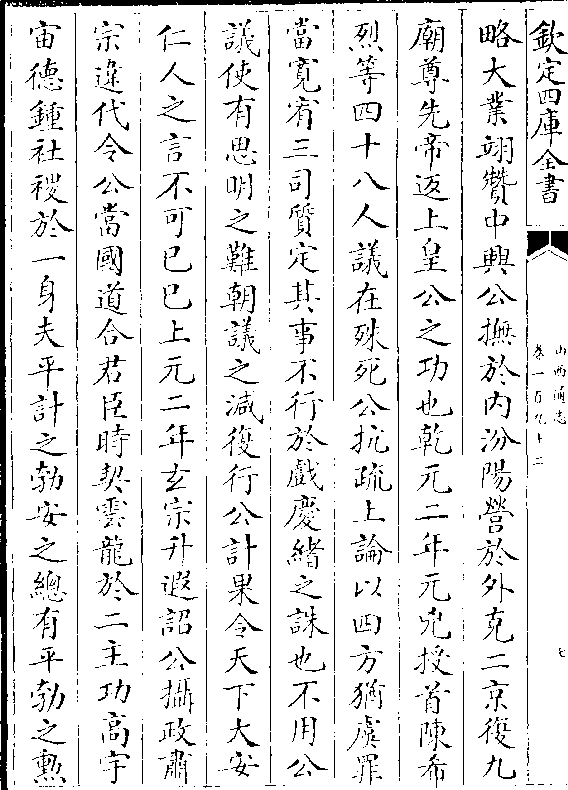 欽定四庫全書
山西通志
卷一百九十二
七
略大業翊贊中興公撫於内汾陽營於外克二京復九
廟尊先帝返上皇公之功也乾元二年元兇授首陳希
烈等四十八人議在殊死公抗疏上論以四方猶虞罪
當寛宥三司質定其事不行於戲慶緒之誅也不用公
議使有思明之難朝議之減復行公計果令天下大安
仁人之言不可已巳上元二年玄宗升遐詔公攝政肅
宗違代令公當國道合君臣時契雲龍於二主功高宇
宙德鍾社稷於一身夫平計之勃安之總有平勃之勲